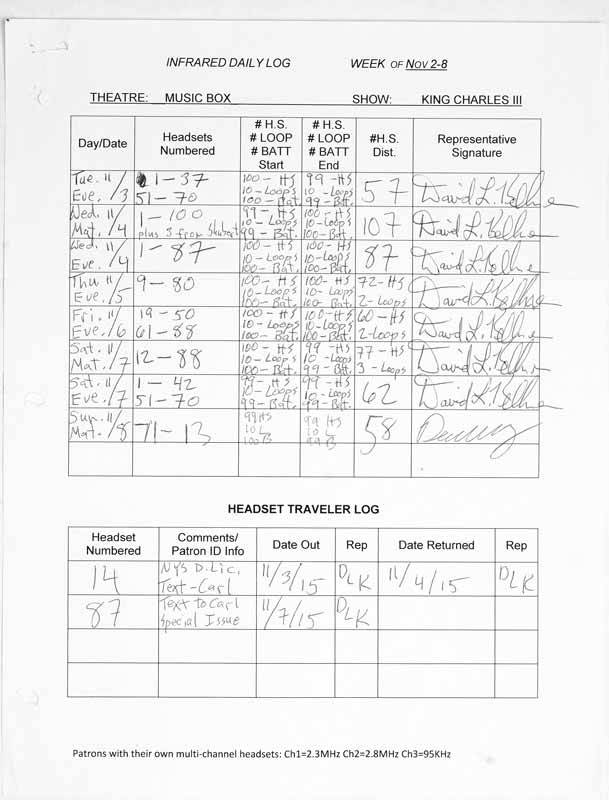 INFRARED DAILY LOG WEEK OF NOV 2-8
THEATRE: MUSIC BOX SHOW: KING CHARLES III
Day/Date Headsets Numbered # H.S. # LOOP # BATT Start # H.S. # LOOP # BATT End #H.S. Dist. Representative Signature
Tue. 11/3 Eve. 1-37 51-70 100-HS 10-Loops 100-Bat. 99-HS 10-Loops 99-Bat. 57 David L. Kollhe
Wed. 11/4 Mat. 1-100 plus 3 from Shubert 99-HS 10-Loops 99-Bat. 100-HS 10-Loops 100-Bat. 107 David L. Kollhe
Wed. 11/4 Eve. 1-87 100-HS 10-Loops 100-Bat. 100-HS 10-Loops 100-Bat. 87 David L. Kollhe
Thu 11/5 Eve. 9-80 100-HS 10-Loops 100-Bat. 100-HS 10-Loops 100-Bat. 72-HS 2-loops David L. Kollhe
Fri. 11/6 Eve. 19-50 61-88 100-HS 10-Loops 100-Bat. 100-HS 10-Loops 100-Bat. 60-HS 2-loops David L. Kollhe
Sat. 11/7 Mat. 12-88 100-HS 10-Loops 100-Bat. 99-HS 10-Loops 99-Bat. 77-HS 3-Loops David L. Kollhe
Sat. 11/7 Eve. 1-42 51-70 99-HS 10-Loops 99-Bat. 99-HS 10-Loops 99-Bat. 62 David L. Kollhe
Sun. 11/8 Mat. 71-13 99HS 10L 100B 99 HS 10 L 99B 58
HEADSET TRAVELER LOG
Headset Numbered Comments/ Patron ID Info Date Out Rep Date Returned Rep
14 NYS D.Lic. Text-Carl 11/3/15 DLK 11/4/15 DLK
87 Text to Carl Special Issue 11/7/15 DLK
Patrons with their own multi-channel headsets: Ch1=2.3MHz Ch2=2.8MHz Ch3=95KHz